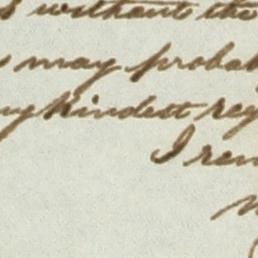 without the
may probab
my kindest reg
I rem